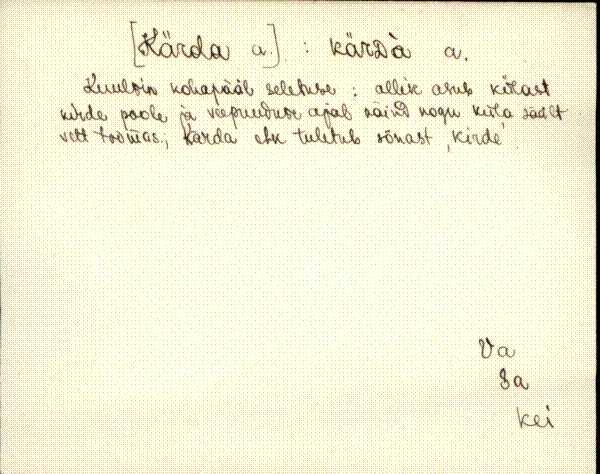 [Kärda a.] : kärDà a.
Kuulsin kohapääl seletuse : allik asub külast
kirde poole ja veepuuduse ajal käind kogu küla säält
vett toomas., Kärda ehk tuletub sõnast ,kirde'
Va
Sa
Kei